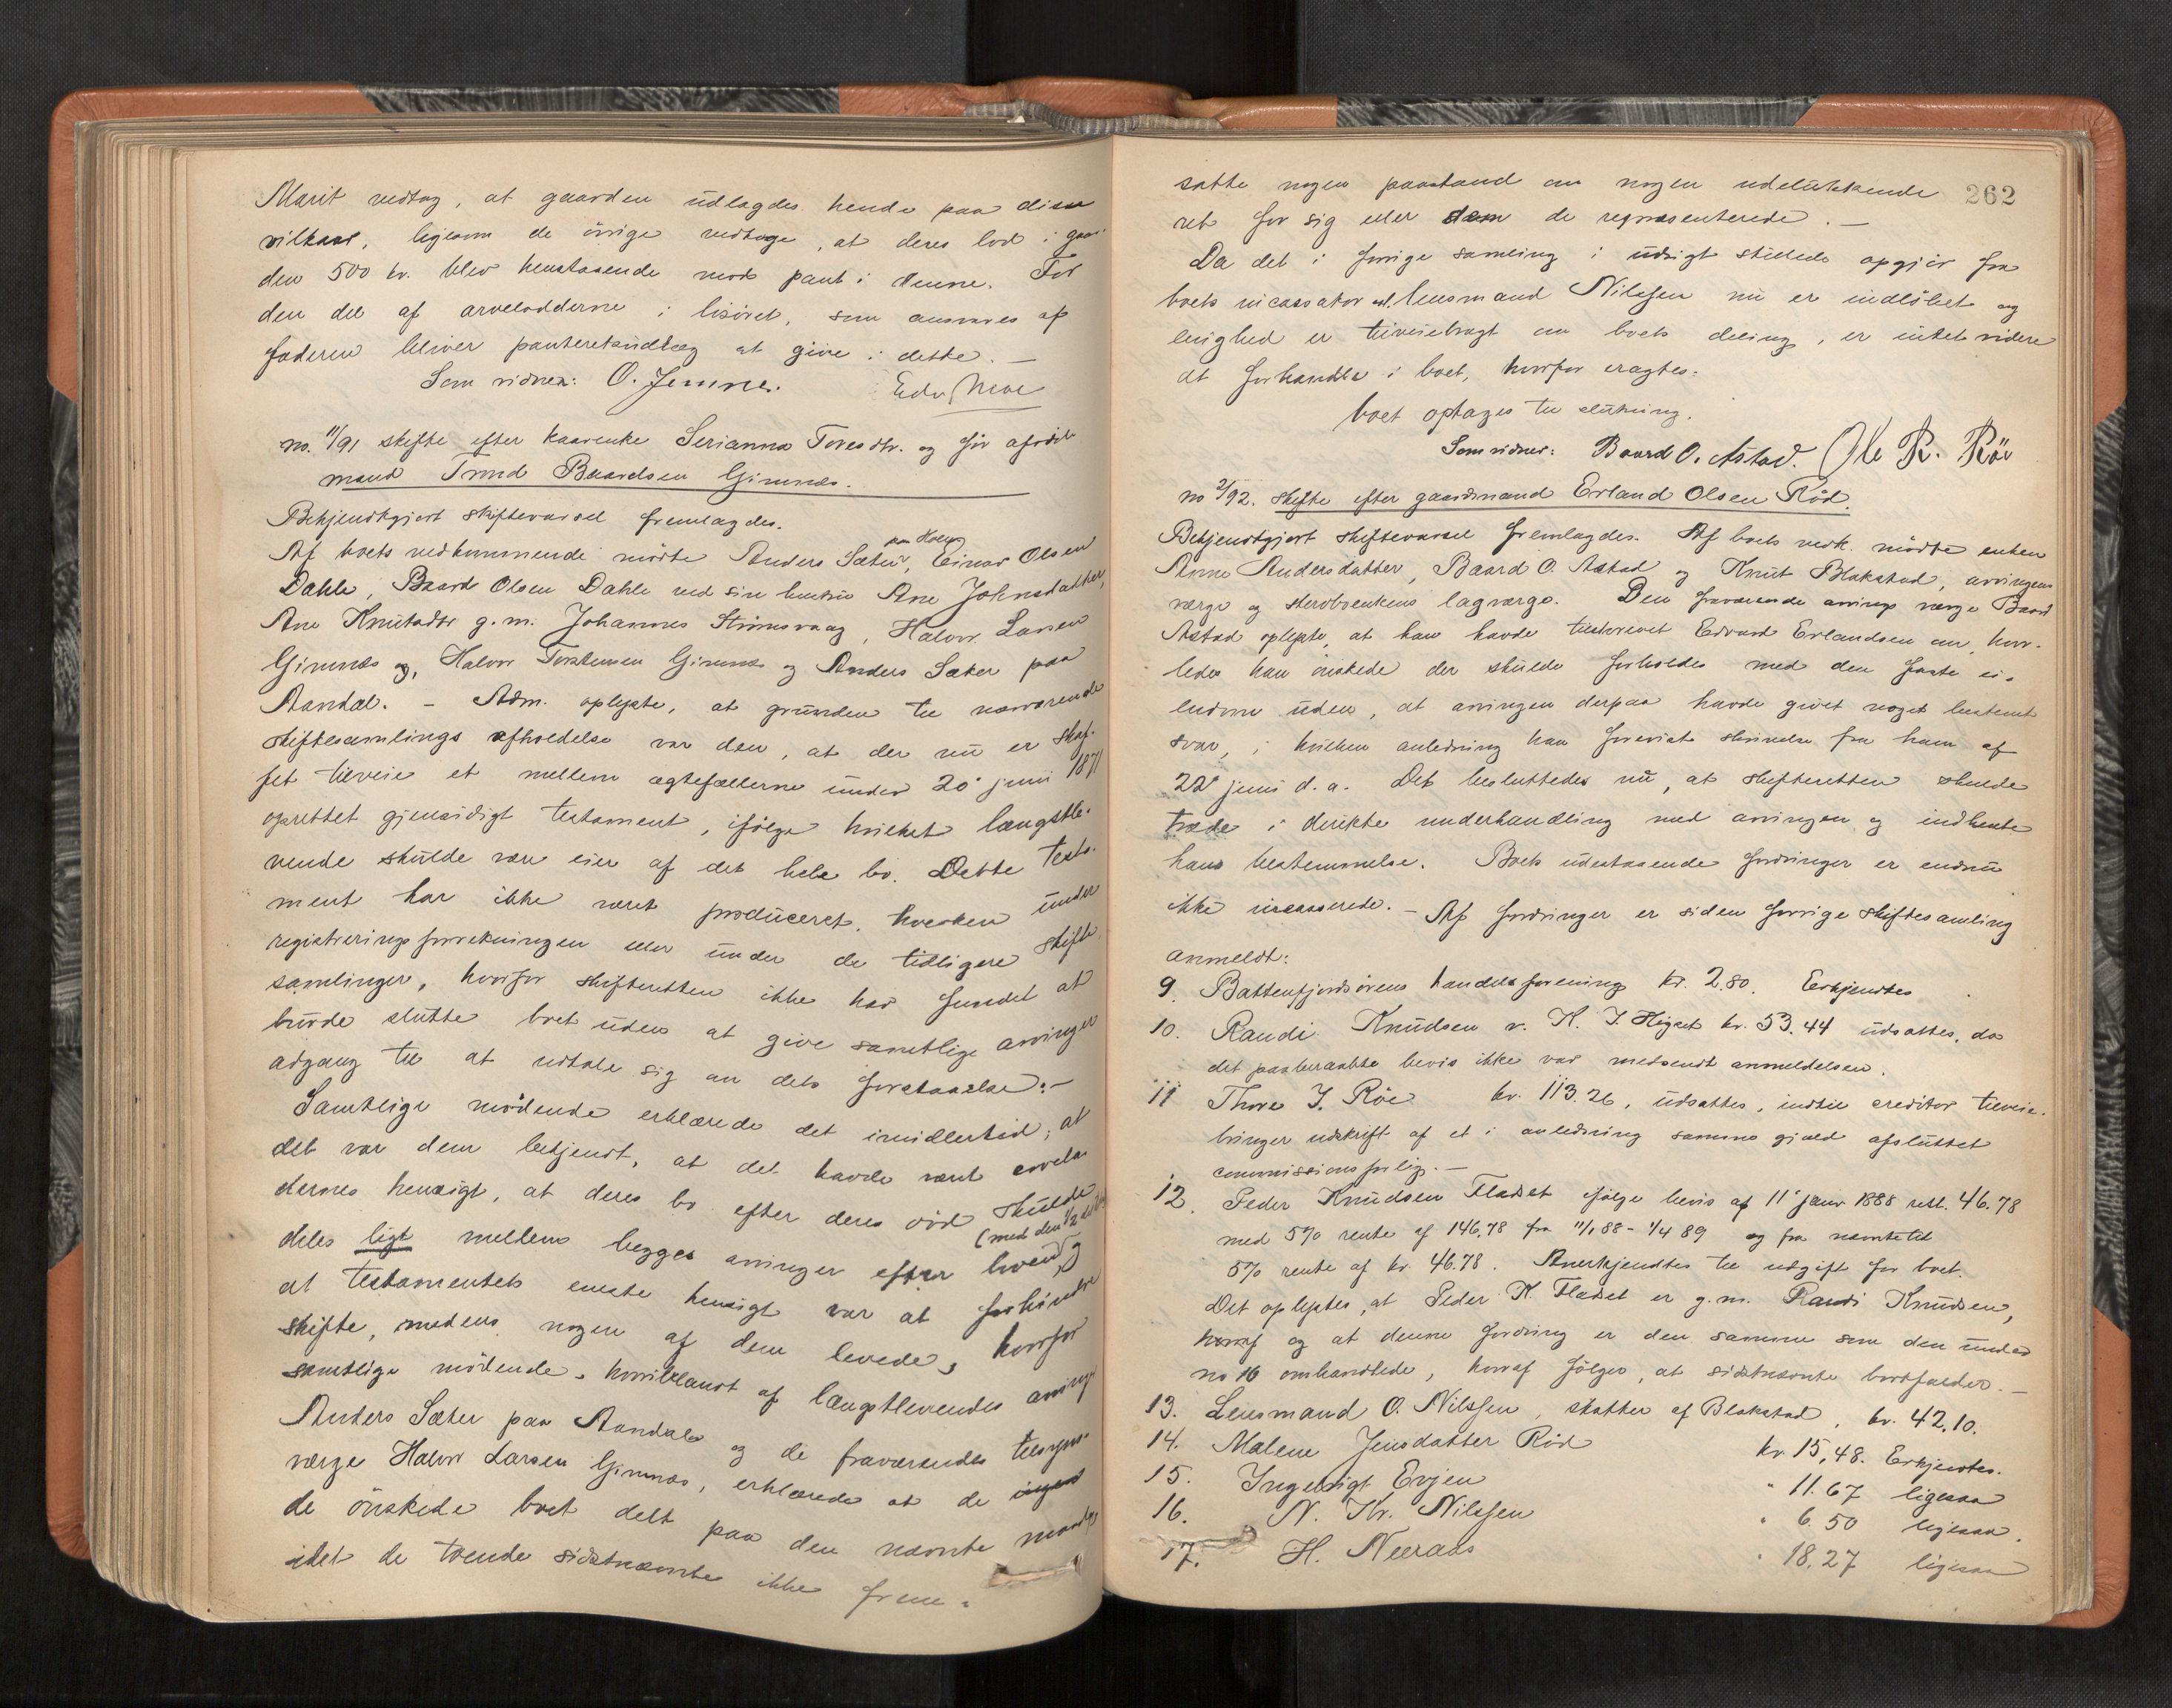 Marit vedtog, at gaarden udlagdes hende paa disse
vilkaar, ligesom de øvrige vedtoge, at deres lod i gaar
den 500 kr. blev henstaaende mod pant i denne. For
den del af arvelodderne i løsøret, som ansvares af
faderen bliver panteretsudlæg at give i dette. —
Som vidner: O. Jemne. Edv Moe
no. 11/91 skifte efter kaarenke Serianna Toresdtr. og før afdøde
mand Trond Baardsen Gimnæs.
Bekjendtgjort skiftevarsel fremlagdes.
Af boets vedkommende mødte Anders Sæter, Einar Olsen
Dahle, Baard Olsen Dahle ved sin hustru Ane Johnsdatter,
Ane Knutsdtr g. m. Johannes Strømsvaag, Halvor Larsen
Gimnæs og, Halvor Torstensen Gimnæs og Anders Sæter paa
Aandal. – Adm. oplyste, at grunden til nærværende
skiftesamlings afholdelse var den, at der nu er skaf-
fet tilveie et mellem ægtefællerne under 20' juni 1871
oprettet gjensidigt testament, ifølge hvilket længstle-
vende skulde være eier af det hele bo. Dette testa-
ment har ikke været produceret, hverken under
registreringsforretningen eller under de tidligere skifte
samlinger, hvorfor skifteretten ikke har fundet at
burde slutte boet uden at give samtlige arvinger
adgang til at udtale sig om dets forstaaelse. –
Samtlige mødende erklærede det imidlertid, at
det var dem bekjendt, at det havde været arvela-
dernes hensigt, at deres bo efter deres død skulde
deles ligt mellem begges arvinger (med den 1/2 del efter hver), og
at testamentets eneste hensigt var at forhindre
skifte, medens nogen af dem levede, hvorfor
samtlige mødende, hvoriblandt af længstlevendes arvinger
Anders Sæter paa Aandal og de fraværendes tilsyns-
værge Halvor Larsen Gimnæs, erklærede at de
de ønskede boet delt paa den nævnte maade,
idet de tvende sidstnævnte ikke frem-
262
satte nogen paastand om nogen udelukkende
ret for sig eller dem de repræsenterede. —
Da det i forrige samling i udsigt stillede opgjør fra
boets incassator lensmand Nilssen nu er indløbet og
enighed er tilveiebragt om boets deling, er intet videre
at forhandle i boet, hvorfor eragtes:
boet optages til slutning.
Som vidner: Baard O. Astad. Ole R. Röe
no 2/92. skifte efter gaardmand Erland Olsen Rød.
Bekjendtgjort skiftevarsel fremlagdes. Af boets vedk. mødte enken
Anne Andersdatter, Baard O. Astad og Knut Blakstad, arvingens
værge og sterboenkens lagværge. Den fraværende arvings værge Baard
Astad oplyste, at han havde tilskrevet Edvard Erlandsen om, hvor-
ledes han ønskede der skulde forholdes med den faste ei-
endom uden, at arvingen derpaa havde givet noget bestemt
svar, i hvilken anledning han foreviste skrivelse fra ham af
22' juni d. a. Det besluttedes nu, at skifteretten skulde
træde i direkte underhandling med arvingen og indhente
hans bestemmelse. Boets udestaaende fordringer er endnu
ikke incasserede. – Af fordringer er siden forrige skiftesamling
anmeldt:
9. Battenfjordsørens handelsforening kr. 2.80. Erkjendtes
10. Randi Knudsen v. K. J. Higset kr. 53.44 udsattes, da
det paaberaabte bevis ikke var medsendt anmeldelsen.
11 Thore J. Röe kr. 113.26, udsattes, indtil creditor tilveie-
bringer udskrift af et i anledning samme gjæld afsluttet
commissionsforlig. —
12. Peder Knudsen Fladset ifølge bevis af 11' janr 1888 rest. 46.78
med 5% rente af 146,78 fra 11/1 88 - 1/4 89 og fra nævnte tid
5% rente af kr. 46.78. Anerkjendtes til udgift for boet.
Det oplystes, at Peder K. Fladset er g. m. Randi Knudsen,
hvoraf og at denne fordring er den samme som den under
no 10 omhandlede, hvoraf følger, at sidstnævnte bortfalder. —
13. Lensmand O. Nilssen, skatter af Blakstad, kr. 42.10.
14. Malene Jensdatter Rød kr 15,48. Erkjendtes.
15. Ingebrigt Evjen " 11.67 ligesaa
16. N. Kr. Nilssen " 6.50 ligesaa.
17. H. Neeraas " 18.27 ligesaa